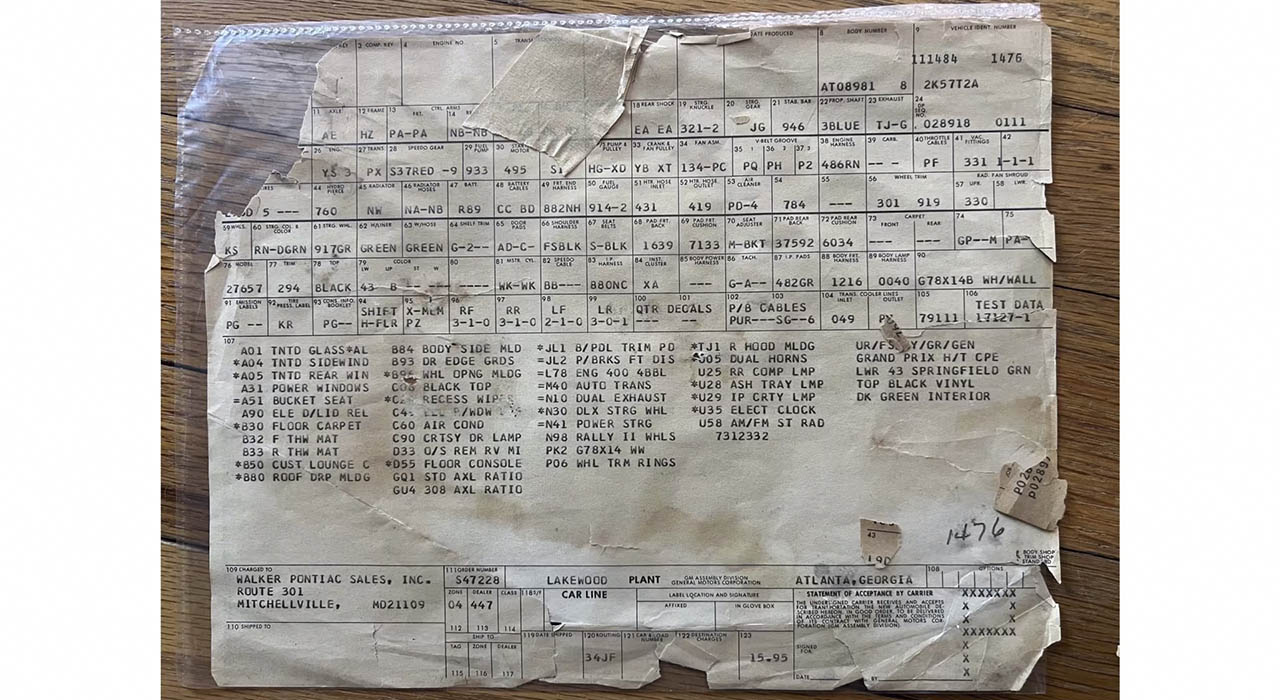 3 COMP. KEY 4 ENGINE NO. 5 DATE PRODUCED 8 BODY NUMBER 9 VEHICLE IDENT. NUMBER
111484 1476
AT08981 8 2K57T2A
11 AXLE 12 FRAME 13 CTRL. ARMS FRT. 14 18 REAR SHOCK 19 STRG. KNUCKLE 20 STRG. GEAR 21 STAB. BAR 22 PROP. SHAFT 23 EXHAUST 24
AE HZ PA-PA NB-NB EA EA 321-2 JG 946 3BLUE TJ-G 028918 0111
26 ENG. 27 TRANS. 28 SPEEDO GEAR 29 FUEL PUMP 30 MOTOR PUMP & PULLEY 33 CRANK & FAN PULLEY 34 FAN ASM. V-BELT GROOVE 35 1 36 2 37 3 38 ENGINE HARNESS 39 CARB. 40 THROTTLE CABLES 41 VAC. FITTINGS 42
YS 3 PX S37RED -9 933 495 HG-XD YB XT 134-PC PQ PH P2 486RN -- - PF 331 1-1-1
44 HYDRO PIERCE 45 RADIATOR 46 RADIATOR HOSES 47 BATT. 48 BATTERY CABLES 49 FRT. END HARNESS 50 FUEL GAUGE 51 HTR. HOSE INLET 52 HTR. HOSE OUTLET 53 AIR CLEANER 54 55 56 WHEEL TRIM RAD. FAN SHROUD 57 UPR. 58 LWR.
5 --- 760 NW NA-NB R89 CC BD 882NH 914-2 431 419 PD-4 784 --- 301 919 330
59 WHLS. 60 STRG. COL. & COLOR 61 STRG. WHL. 62 H/LINER 63 W/HOSE 64 SHELF TRIM 65 DOOR PADS 66 SHOULDER HARNESS 67 SEAT BELTS 68 PAD FRT. BACK 69 PAD FRT. CUSHION 70 SEAT ADJUSTER 71 PAD REAR BACK 72 PAD REAR CUSHION 73 CARPET FRONT REAR 74 75
KS RN-DGRN 917GR GREEN GREEN G-2-- AD-C- FSBLK S-BLK 1639 7133 M-BKT 37592 6034 --- --- GP--M PA-
76 MODEL 77 TRIM 78 TOP 79 COLOR LW UP ST W 80 81 MSTR. CYL. 82 SPEEDO CABLE 83 I.P. HARNESS 84 INST. CLUSTER 85 BODY POWER HARNESS 86 TACH. 87 I.P. PADS 88 BODY FRT. HARNESS 89 BODY LAMP HARNESS 90
27657 294 BLACK 43 B --- --- WK-WK BB--- 880NC XA --- G-A-- 482GR 1216 0040 G78X14B WH/WALL
91 EMISSION LABELS 92 TIRE PRESS. LABEL 93 CONS. INFO. BOOKLET 94 95 96 97 98 99 100 101 102 103 104 TRANS. COOLER LINES INLET OUTLET 105 106
SHIFT X-MEM RF RR LF LR QTR DECALS P/B CABLES TEST DATA
PG -- KR PG-- H-FLR PZ 3-1-0 3-1-0 2-1-0 3-0-1 --- --- PUR---SG--6 049 79111 17127-1
107
A01 TNTD GLASS*AL B84 BODY SIDE MLD *JL1 B/PDL TRIM PO *TJ1 R HOOD MLDG
*A04 TNTD SIDEWIND B93 DR EDGE GRDS =JL2 P/BRKS FT DIS *U05 DUAL HORNS GRAND PRIX H/T CPE
*A05 TNTD REAR WIN WHL OPNG MLDG =L78 ENG 400 4BBL U25 RR COMP LMP LWR 43 SPRINGFIELD GRN
A31 POWER WINDOWS C08 BLACK TOP =M40 AUTO TRANS *U28 ASH TRAY LMP TOP BLACK VINYL
=A51 BUCKET SEAT RECESS WIPER =N10 DUAL EXHAUST *U29 IP CRTY LMP DK GREEN INTERIOR
A90 ELE D/LID REL *N30 DLX STRG WHL *U35 ELECT CLOCK
*B30 FLOOR CARPET C60 AIR COND =N41 POWER STRG U58 AM/FM ST RAD
B32 F THW MAT C90 CRTSY DR LAMP N98 RALLY II WHLS 7312332
B33 R THW MAT D33 O/S REM RV MI PK2 G78X14 WW
*B50 CUST LOUNGE C *D55 FLOOR CONSOLE P06 WHL TRM RINGS
*B80 ROOF DRP MLDG GQ1 STD AXL RATIO
GU4 308 AXL RATIO
1476
BODY SHOP
TRIM SHOP
109 CHARGED TO 111 ORDER NUMBER LAKEWOOD PLANT GM ASSEMBLY DIVISION GENERAL MOTORS CORPORATION ATLANTA, GEORGIA 108 OPTIONS
WALKER PONTIAC SALES, INC. S47228
ROUTE 301 ZONE DEALER CLASS CAR LINE LABEL LOCATION AND SIGNATURE STATEMENT OF ACCEPTANCE BY CARRIER XXXXXXX
MITCHELLVILLE, MD21109 04 447 AFFIXED IN GLOVE BOX X X
112 113 114 X X
THE UNDERSIGNED CARRIER RECEIVES AND ACCEPTS
FOR TRANSPORTATION THE NEW AUTOMOBILE DE-
SCRIBED HEREIN, IN GOOD ORDER, TO BE DELIVERED
IN ACCORDANCE WITH THE TERMS AND CONDITIONS
OF ITS CONTRACT WITH GENERAL MOTORS COR-
PORATION (GM ASSEMBLY DIVISION).
110 SHIPPED TO SHIP TO 119 DATE SHIPPED 120 ROUTING 121 CAR & LOAD NUMBER 122 DESTINATION CHARGES 123 XXXXXXX
TAG ZONE DEALER 34JF 15.95 SIGNED FOR: X
115 116 117 DATE BY X